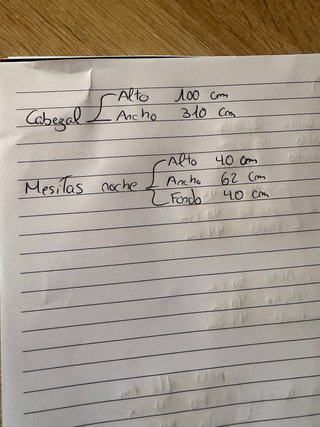 Alto 100 cm
Cabezal Ancho 310 cm
Alto 40 cm
Mesitas noche Ancho 62 cm
Fondo 40 cm